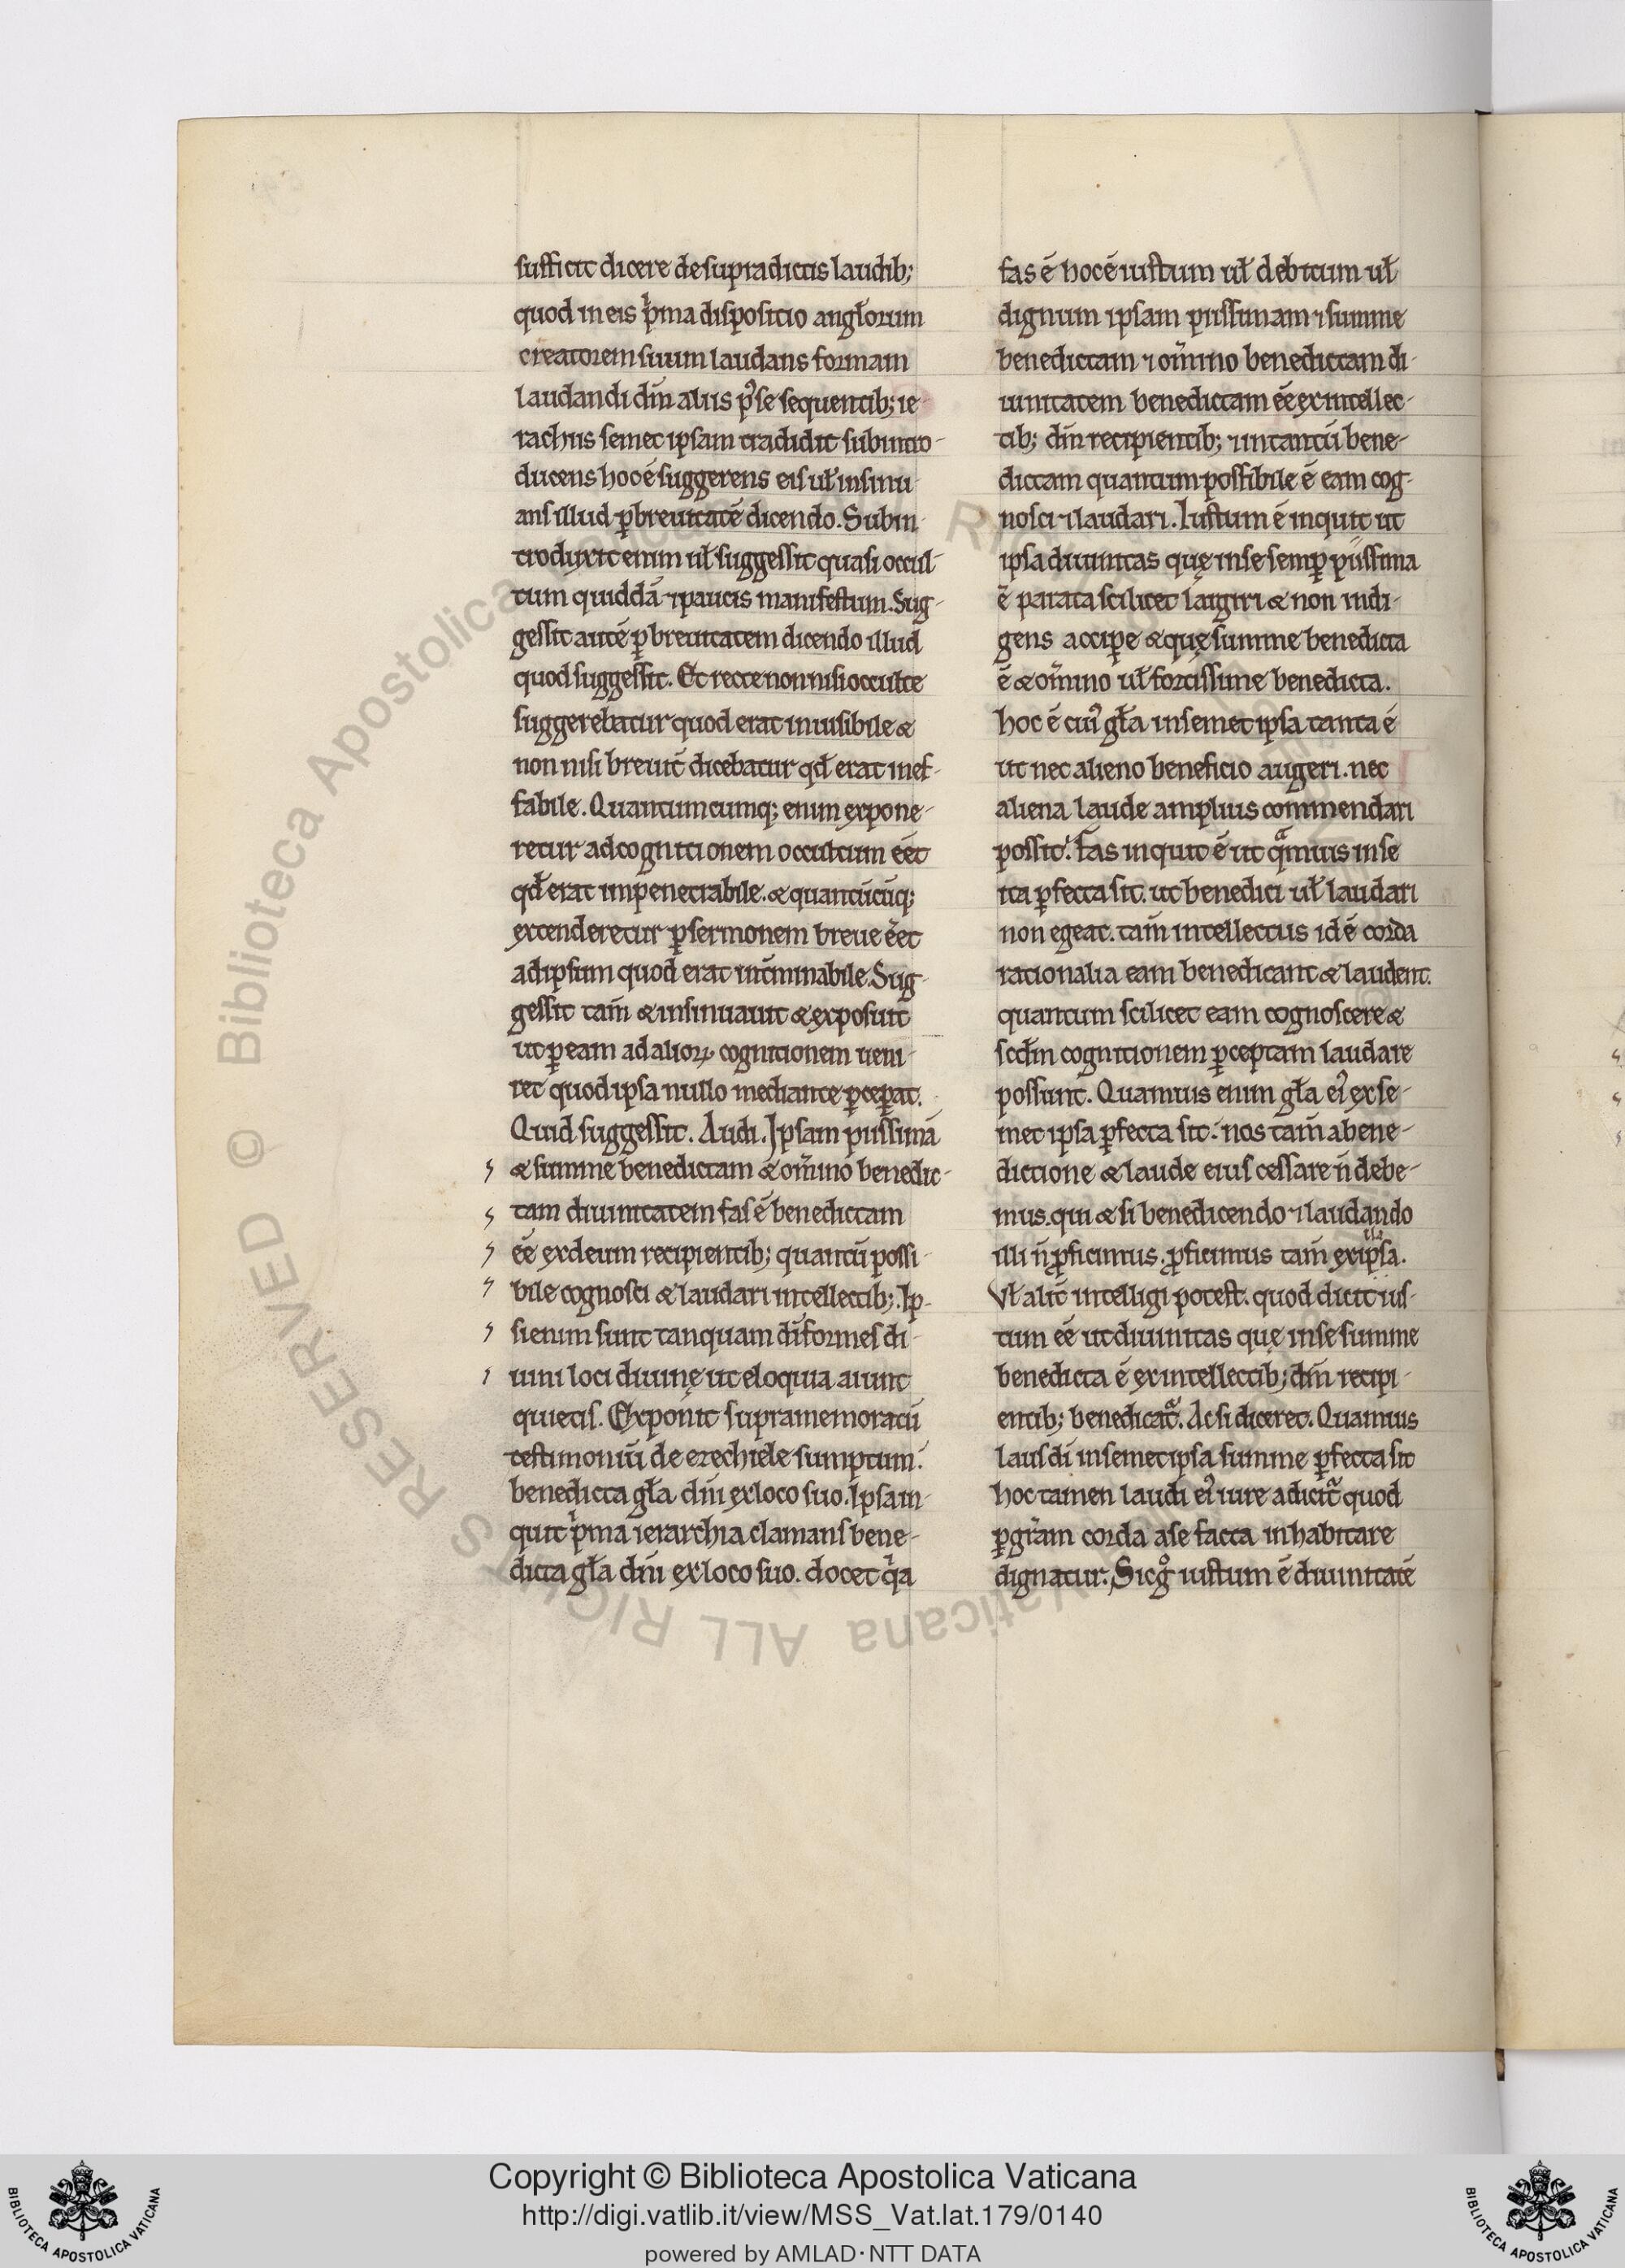 sufficit dicere de supradictis laudib;
quod in eis p̍ma dispositio angłorum
creatorem suum laudans formam
laudandi dm̄ aliis pꝰ se sequentib; ie-
rachiis semet ipsam tradidit subintro-
ducens hoc ē suggerens eis uł insinu-
ans illud ꝑ breuitatē dicendo. Subin-
troduxit enim uł suggessit quasi occul-
tum quiddā ⁊ paucis manifestum. Sug-
gessit autē ꝑ breuitatem dicendo illud
quod suggessit. Et recte non nisi occulte
suggerebatur quod erat inuisibile &
non nisi breuit̄ dicebatur qđ erat inef-
fabile. Quantumcumq; enim expone-
retur ad cognitionem occultum eēt
qđ erat impenetrabile. & quantūcūq;
extenderetur ꝑ sermonem breue eēt
ad ipsum quod erat int̄minabile. Sug-
gessit tam̄ & insinuauit & exposuit
ut ꝑ eam ad alioꝝ cognitionem ueni-
ret quod ipsa nullo mediante ꝑceꝑat.
Quid suggessit. Audi. Ipsam piissimā
& summe benedictam & om̄ino benedic-
tam diuinitatem fas ē benedictam
eē ex deum recipientib; quantū possi-
bile cognosci & laudari intellectib;. Ip-
si enim sunt tanquam dīformes di-
uini loci diuinę ut eloquia aiunt
quietis. Exponit supra memoratū
testimoniū de ezechiele sumptum.
benedicta gła dn̄i ex loco suo. Ipsa in-
quit p̍ma ierarchia clamans bene-
dicta gła dn̄i ex loco suo. docet q̍a
fas ē hoc ē iustum uł debitum uł
dignum ipsam piissimam ⁊ summe
benedictam ⁊ om̄ino benedictam di-
uinitatem benedictam eē ex intellec-
tib; dm̄ recipientib; ⁊ in tantū bene-
dictam quantum possibile ē eam cog-
nosci ⁊ laudari. Iustum ē inquit ut
ipsa diuinitas quę in se semꝑ piissima
ē parata scilicet largiri & non indi-
gens acciꝑe & quę summe benedicta
ē & om̄ino uł fortissime benedicta.
hoc ē cuiꝰ gła in semet ipsa tanta ē
ut nec alieno beneficio augeri. nec
aliena laude amplius commendari
possit. Fas inquit ē ut qͣmuis in se
ita ꝑfecta sit. ut benedici uł laudari
non egeat. tam̄ intellectus id ē corda
rationalia eam benedicant & laudent.
quantum scilicet eam cognoscere &
scdm̄ cognitionem ꝑceptam laudare
possunt. Quamuis enim gła eiꝰ ex se-
met ipsa ꝑfecta sit. nos tam̄ a bene-
dictione & laude eius cessare n̄ debe-
mus. qui & si benedicendo ⁊ laudando
illa
illi n̄ ꝓficimus. ꝓficimus tam̄ ex ipsa.
Vł alit̄ intelligi potest. quod dicit ius-
tum eē ut diuinitas quę in se summe
benedicta ē ex intellectib; dm̄ recipi-
entib; benedicatͣ. Ac si diceret. Quamuis
laus dī in semet ipsa summe ꝑfecta sit
hoc tamen laudi eiꝰ iure adicitͣ quod
ꝑ gr̄am corda a se facta inhabitare
dignatur. Sic gͦ iustum ē diuinitatē
Copyright © Biblioteca Apostolica Vaticana
http://digi.vatlib.it/view/MSS_Vat.lat.179/0140
powered by AMLAD·NTT DATA
BIBLIOTECA APOSTOLICA VATICANA
BIBLIOTECA APOSTOLICA VATICANA